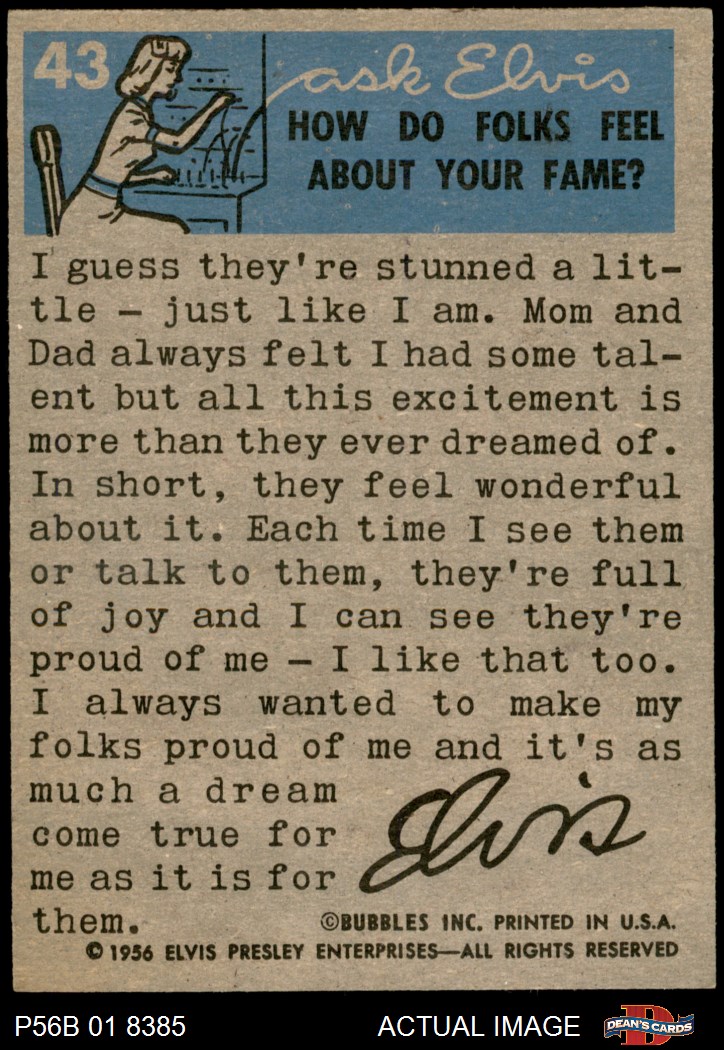 43
ask Elvis
HOW DO FOLKS FEEL
ABOUT YOUR FAME?
I guess they're stunned a lit-
tle — just like I am. Mom and
Dad always felt I had some tal-
ent but all this excitement is
more than they ever dreamed of.
In short, they feel wonderful
about it. Each time I see them
or talk to them, they're full
of joy and I can see they're
proud of me — I like that too.
I always wanted to make my
folks proud of me and it's as
much a dream
come true for
me as it is for
them.
Elvis
©BUBBLES INC. PRINTED IN U.S.A.
© 1956 ELVIS PRESLEY ENTERPRISES—ALL RIGHTS RESERVED
P56B 01 8385
ACTUAL IMAGE
D
DEAN'S CARDS